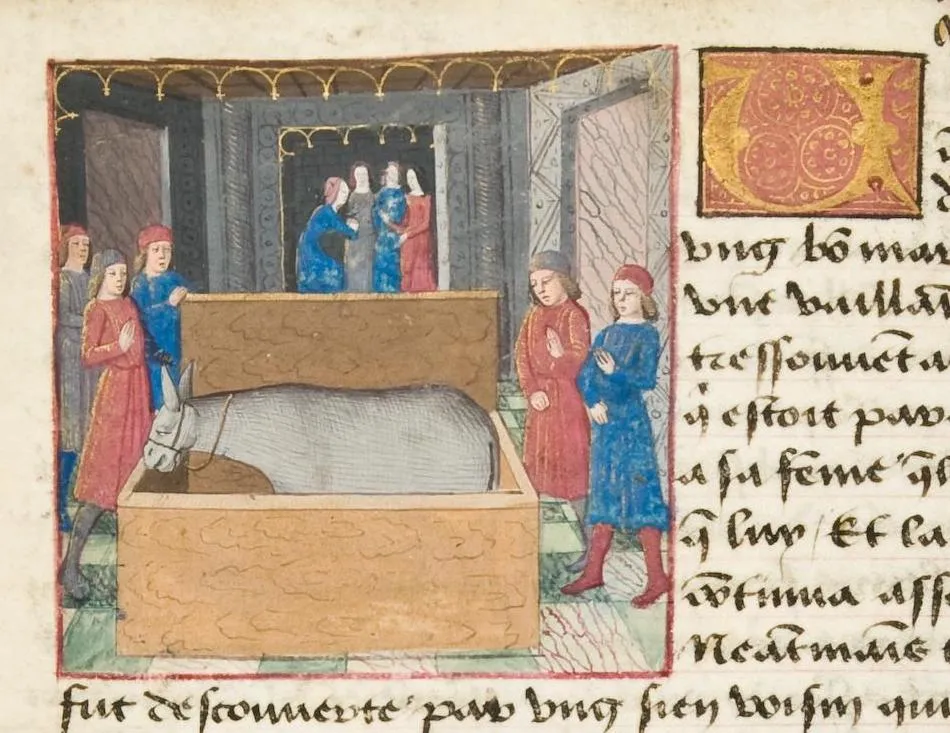 vng bō mar
vne vaillā
tressouuēt a
q̄ estoit par
a sa fēme q̄l
q̄ luy / Et la
ↄ̄tinua asse
Neātmais
fut descouuerte par vng sien voisin qui